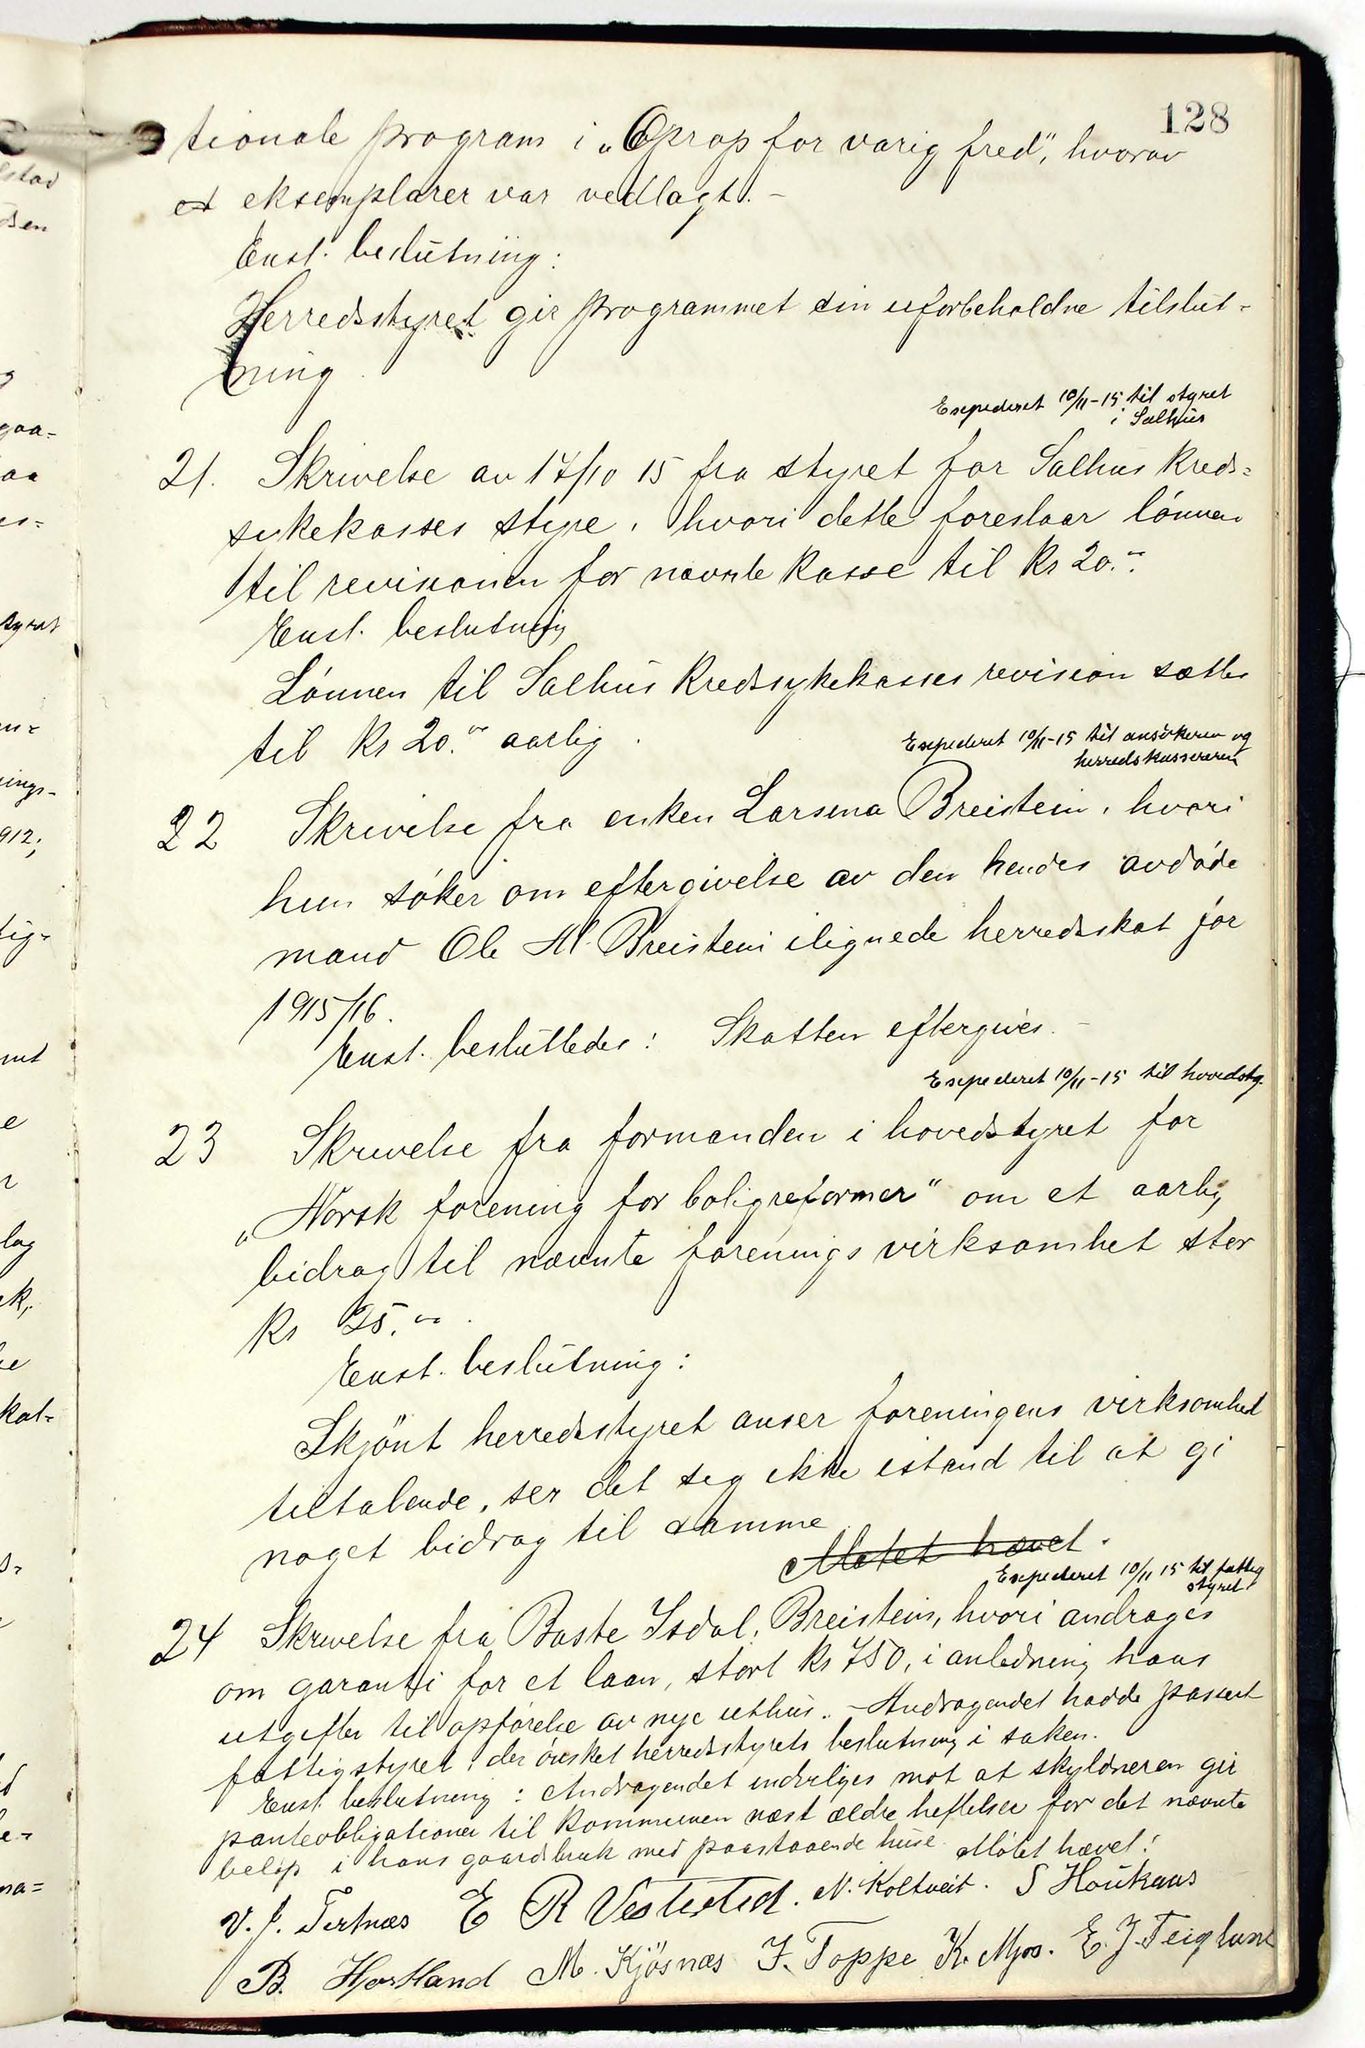 128
tionale program i „Oprop for varig fred", hvorav
et eksemplarer var vedlagt. -
Enst. beslutning:
Herredsstyret gir programmet sin uforbeholdne tilslut-
ning.
Expederet 10/11-15 til styret
i Salhus
21. Skrivelse av 17/10 15 fra styret for Salhus Kreds=
sykekasses styre, hvori dette foreslaar lønnen
til revisionen for nævnte kasse til Kr 20.-
Enst. beslutning
Lønnen til Salhus Kredssykekasses revision sættes
til Kr 20.- aarlig.
Expederet 10/11-15 til ansökeren og
herredskassereren
22 Skrivelse fra enken Larsina Breistein, hvori
hun søker om eftergivelse av den hendes avdøde
mand Ole M. Breistein ilignede herredsskat for
1915/16.
Enst. besluttedes: Skatten eftergives. -
Expederet 10/11-15 til hovedsty.
23 Skrivelse fra formanden i hovedstyret for
„Norsk forening for boligreformer" om et aarlig
bidrag til nævnte forenings virksomhet stor
Kr 25.-
Enst. beslutning:
Skjönt herredsstyret anser foreningens virksomhet
tiltalende, ser det seg ikke istand til at gi
noget bidrag til samme
Møtet hævet.
Expederet 10/11 15 til fattig
styret
24 Skrivelse fra Baste Isdal, Breistein, hvori andrages
om garanti for et laan, stort Kr 750, i anledning hans
utgifter til opførelse av nye uthus. - Andragendet hadde passert
fattigstyret, der ønsket herredsstyrets beslutning i saken.
Enst. beslutning: Andragendet indvilges mot at skyldneren gir
panteobligationer til kommunen næst ældre heftelser for det nævnte
beløp i hans gaardsbruk med paastaaende huse. Møtet hævet!
V. J. Tertnæs E R Vestrheim. N. Koltveit. S Houkaas
B. Hordland M. Kjösnæs J. Toppe K. Mjos. E. J. Teiglund